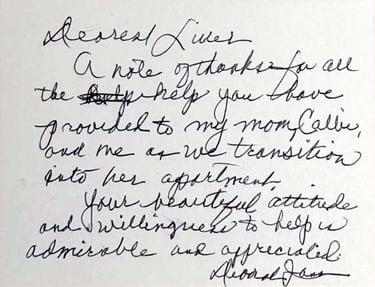 Dearest
A note of thanks for all
the help you have
provided to my mom, Callie,
and me as we transition
into her apartment.
Your beautiful attitude
and willingness to help is
admirable and appreciated.